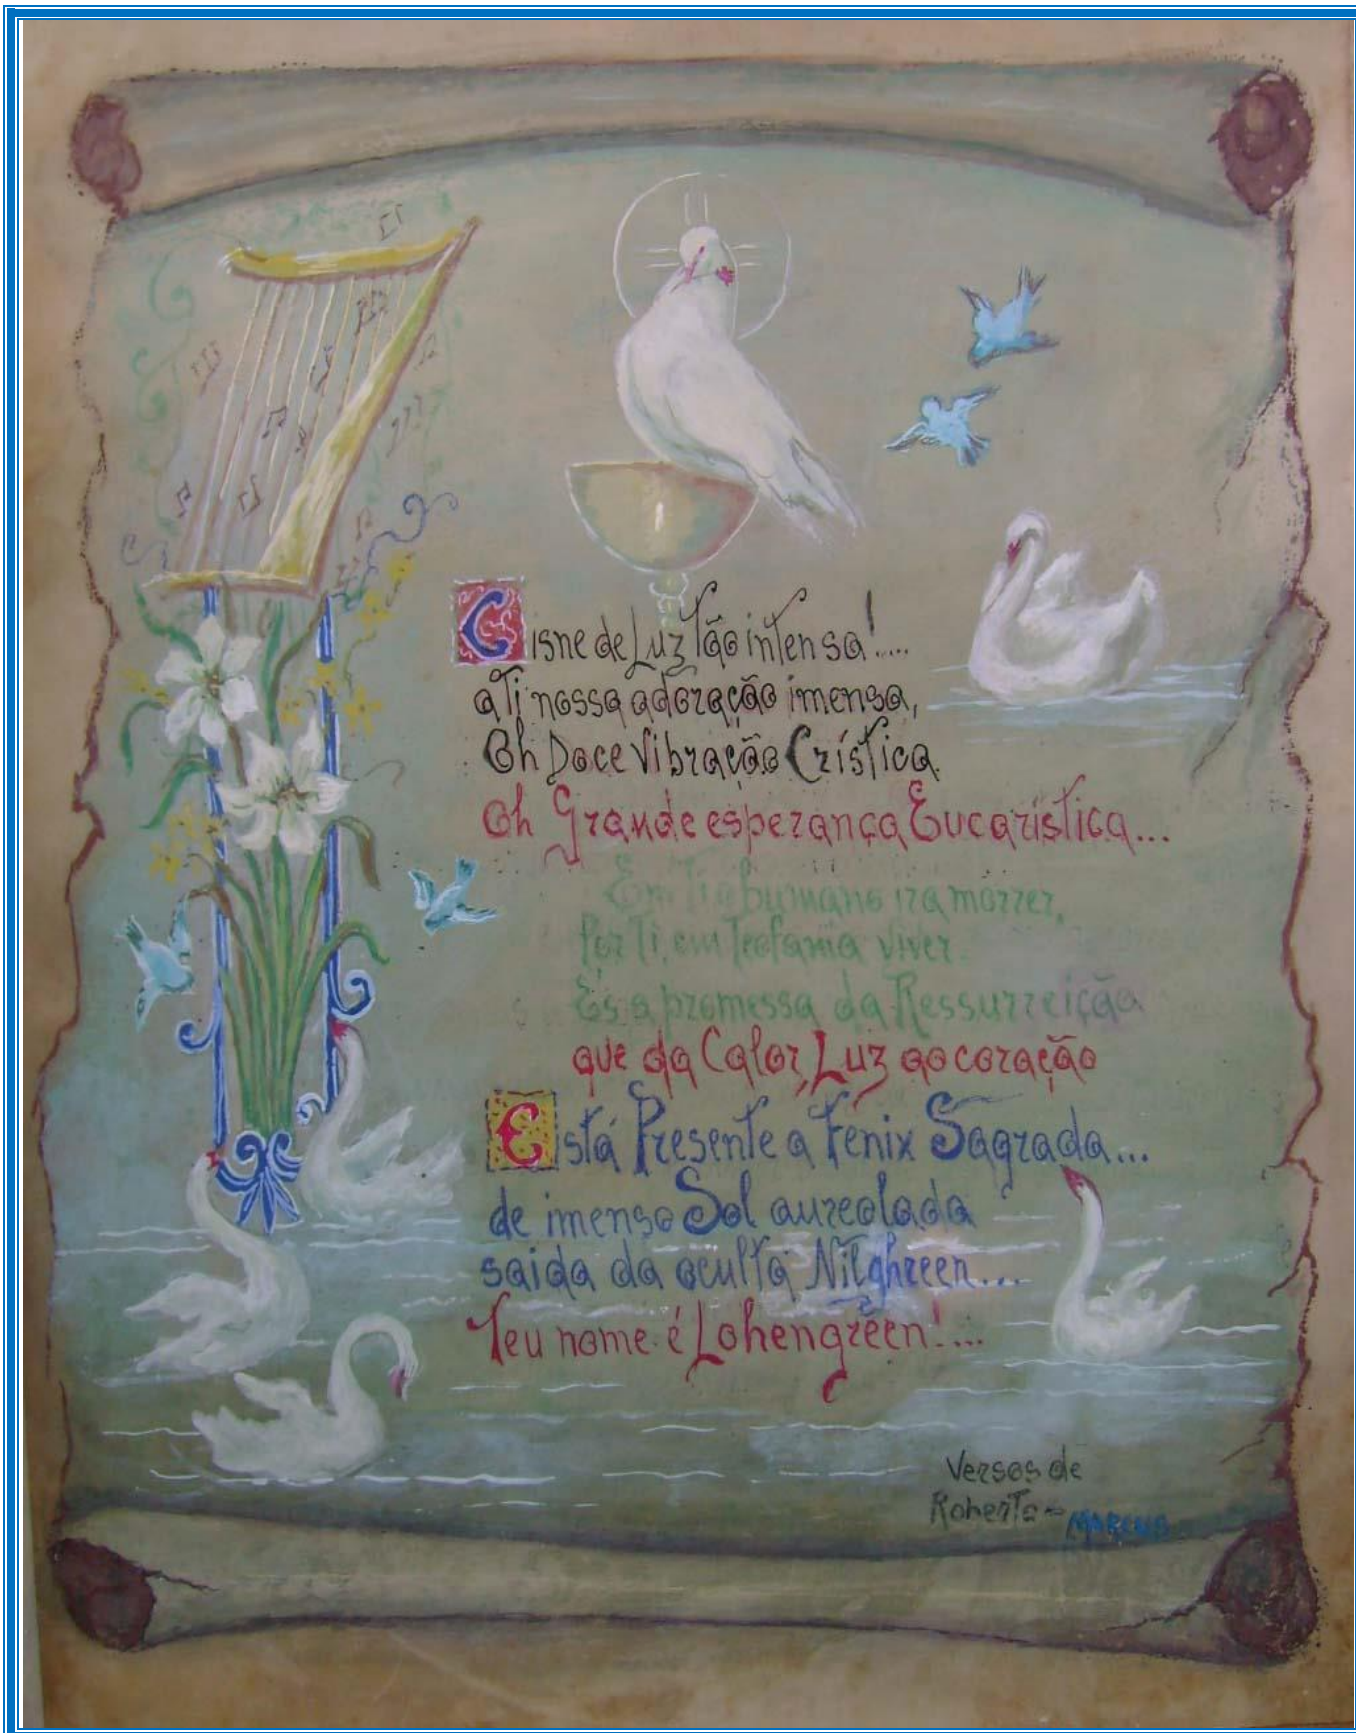 Cisne de Luz tão intensa!....
a Ti nossa adoração imensa,
Oh Doce Vibração Crística
Oh Grande esperança Eucarística...
Em Ti o humano ira morrer,
Por Ti, em Teofania viver.
És a promessa da Ressurreição
que da Calor, Luz ao coração
Está Presente a Fenix Sagrada...
de imenso Sol aureolada
saida da oculta Nilghreen...
Teu nome é Lohengreen!...
Versos de
Roberto - MARCUS